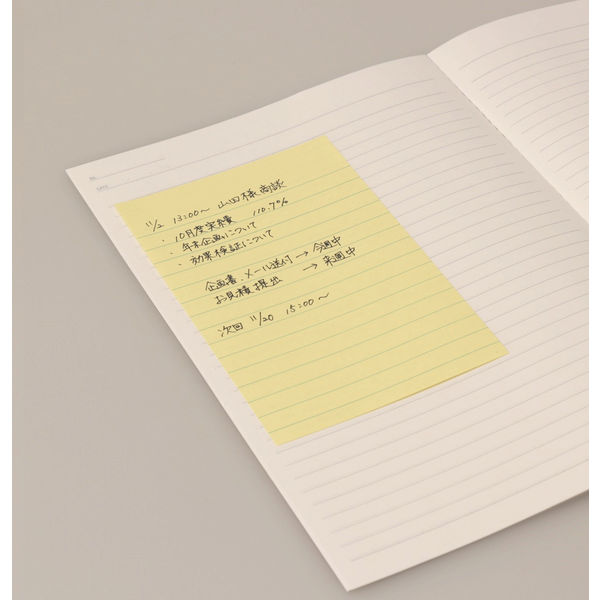 11/2 13:00～ 山田様商談
・10月度実績 110.7%
・年末企画について
・効果検証について
企画書.メール送付→今週中
お見積提出 →来週中
次回 11/20 15:00～